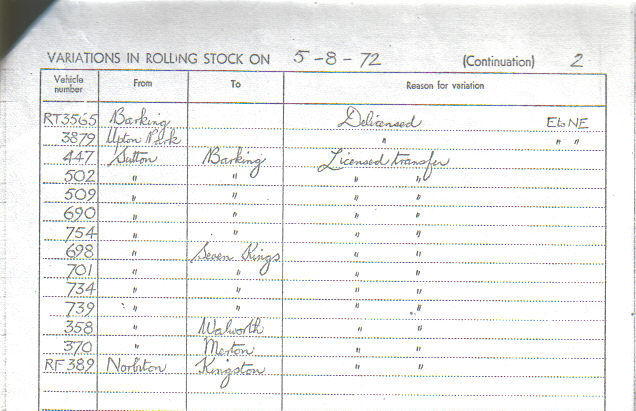 VARIATIONS IN ROLLING STOCK ON 5-8-72 (Continuation) 2
Vehicle number From To Reason for variation
RT3565 Barking Delicensed E to NE
3879 Upton Park " " "
447 Sutton Barking Licensed transfer
502 " " " "
509 " " " "
690 " " " "
754 " " " "
698 " Seven Kings " "
701 " " " "
734 " " " "
739 " " " "
358 " Walworth " "
370 " Merton " "
RF389 Norbiton Kingston " "